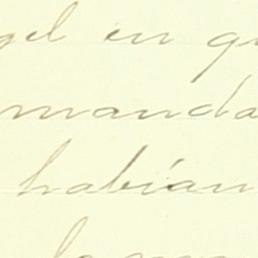 gel en qu
manda
habían